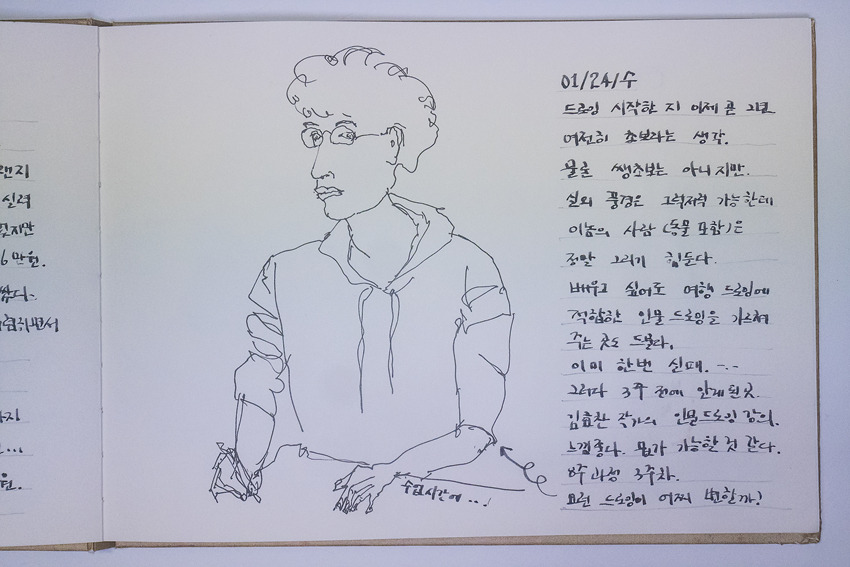 랜지
실력
있지만
6만원.
쌌다.
01/24/수
드로잉 시작한 지 이제 곧 2년.
여전히 초보라는 생각.
물론 쌩초보는 아니지만.
실외 풍경은 그럭저럭 가능한데
이놈의 사람(동물 포함)은
정말 그리기 힘든다.
배우고 싶어도 여행 드로잉에
적합한 인물 드로잉을 가르쳐
주는 곳도 드물다.
이미 한번 실패. -.-
그러다 3주 전에 알게된 곳.
김효찬 작가의 인물드로잉 강의.
느낌좋다. 뭔가 가능한 것 같다.
8주 과정 3주차.
요런 드로잉이 어찌 변할까!
수업시간에...!